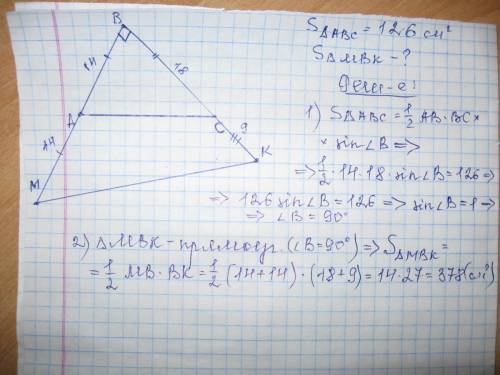 B
14
18
A
C
9
14
K
M
S△ABC = 126 см²
S△MBK - ?
Реш-е:
1) S△ABC = 1/2 AB·BC×
× sin∠B =>
=> 1/2·14·18·sin∠B = 126 =>
=> 126 sin∠B = 126 => sin∠B = 1 =>
=> ∠B = 90°
2) △MBK - прямоуг. (∠B = 90°) => S△MBK =
= 1/2 MB·BK = 1/2 (14+14)·(18+9) = 14·27 = 378 (см²)